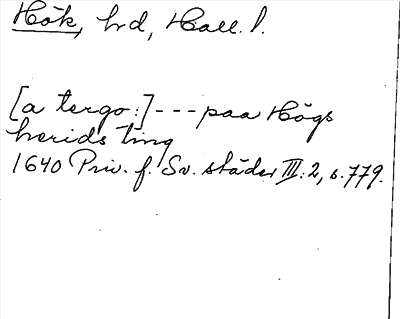 Hök, hrd, Hall. l.
[a tergo:] --- paa Högs
herids ting
1640 Priv. f. Sv. städer III: 2, s. 779.